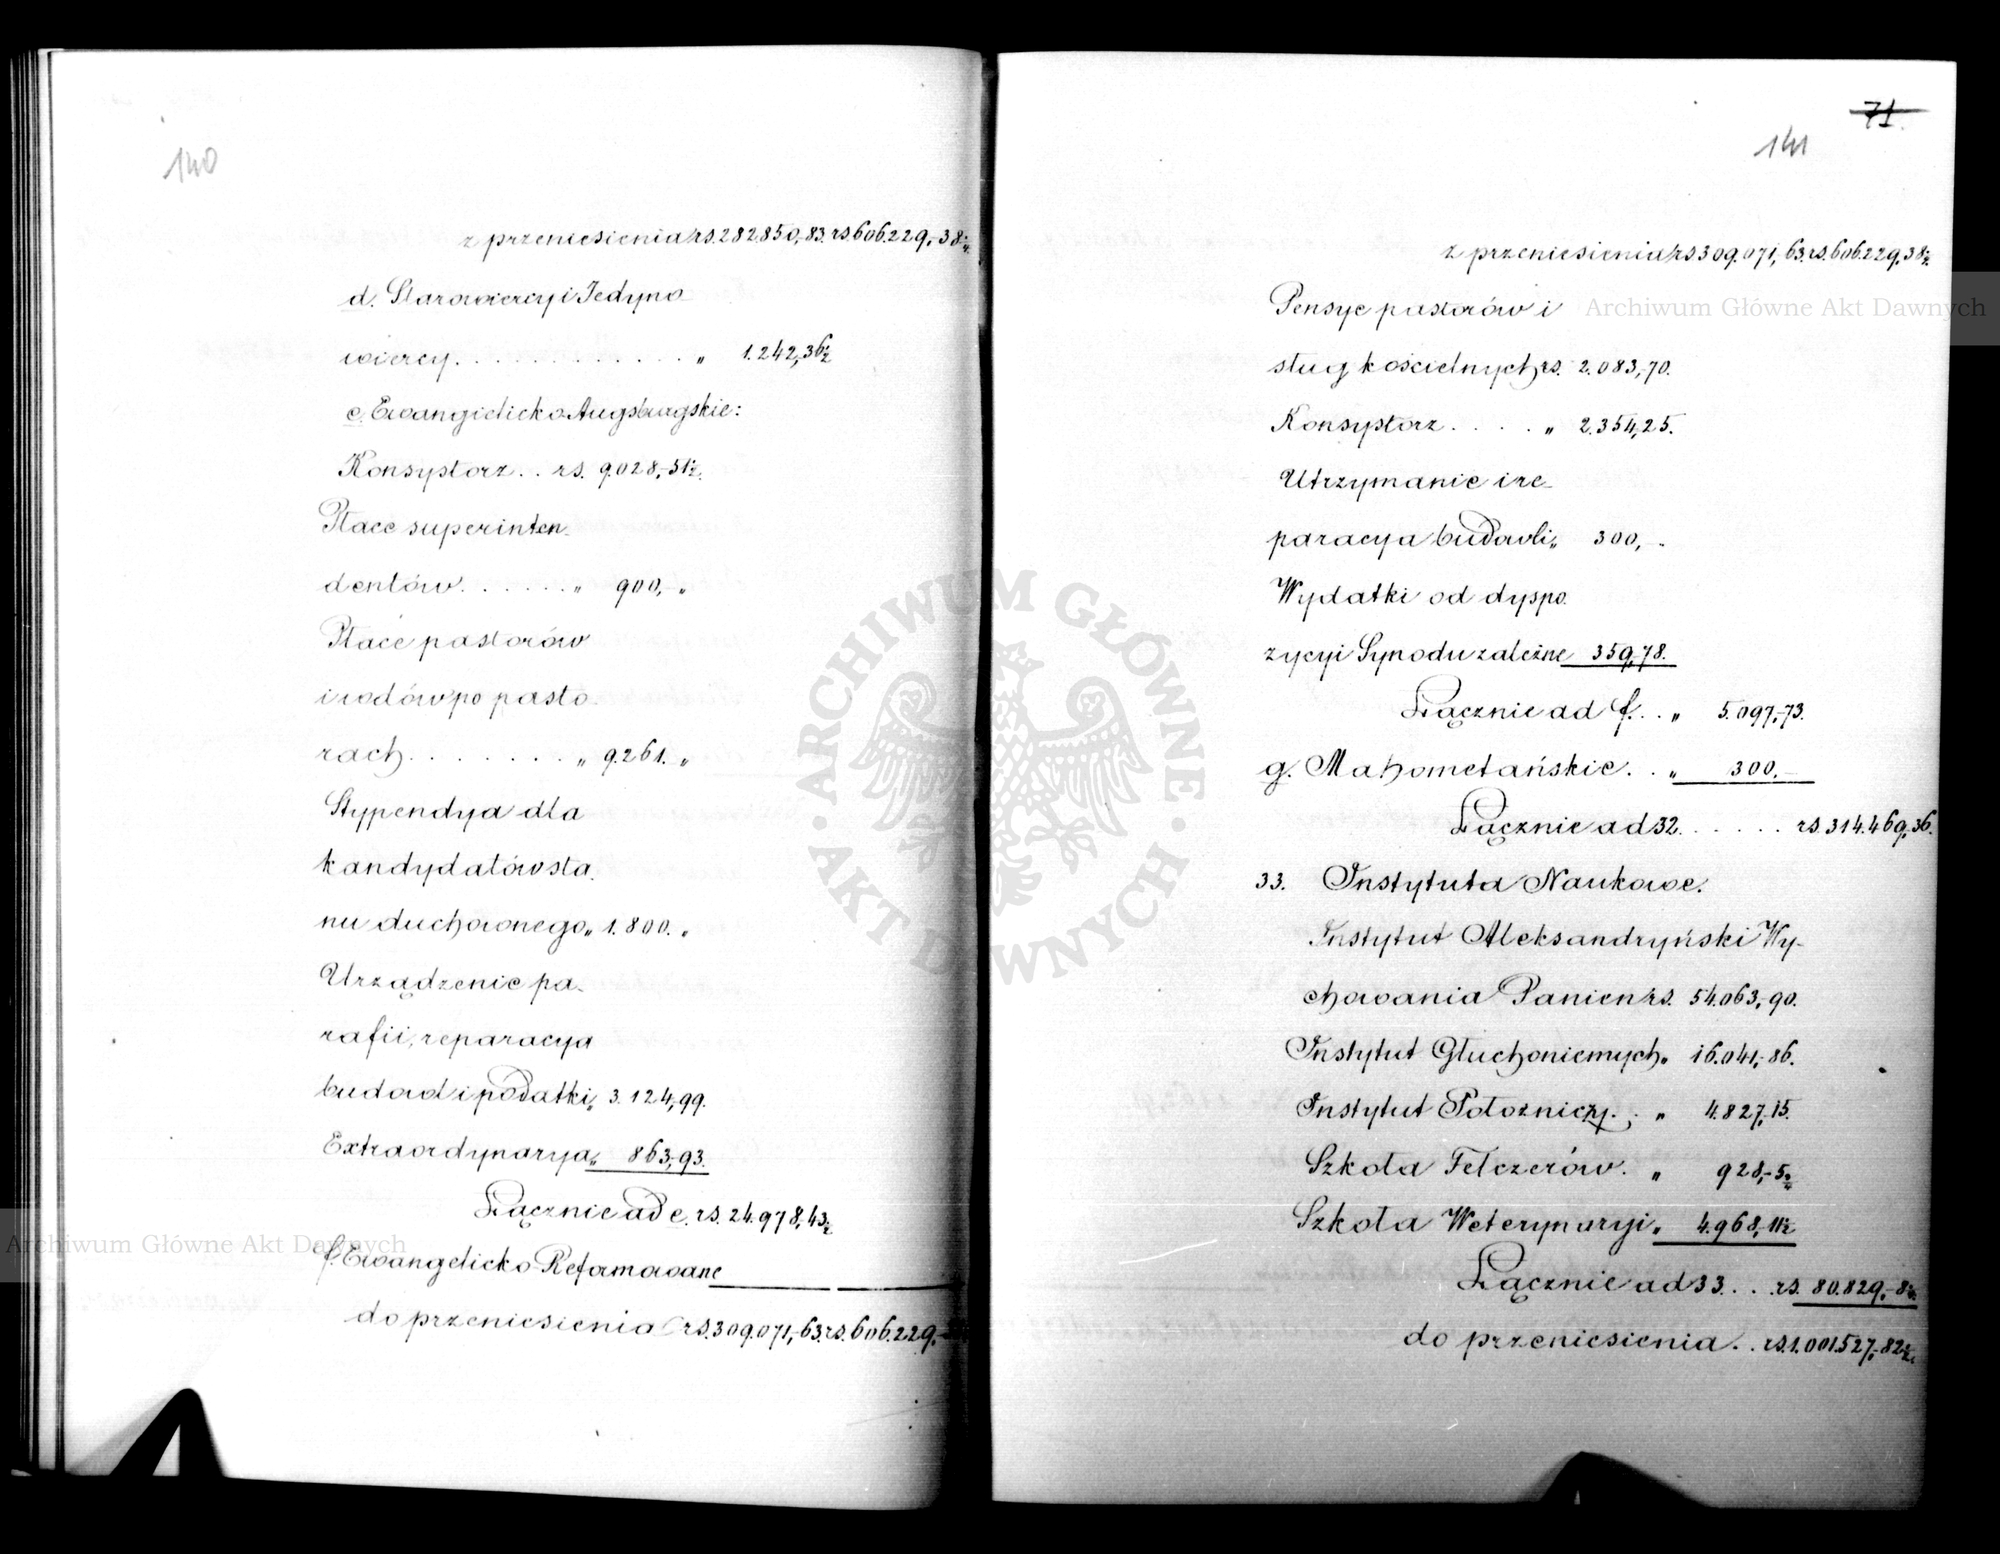 140
z przeniesienia rs. 282.850,-83. rs. 606.229,-38½
d. Starowiercy i Jedyno
wiercy . . . . . . . . . . . „ 1.242,-36½
e. Ewangielicko Augsburgskie:
Konsystorz . . rs. 9.028,-51½.
Płace superinten-
dentów . . . . . . „ 900,- „
Płace pastorów
i wdów po pasto-
rach . . . . . . . „ 9.261. „
Stypendya dla
kandydatów sta-
nu duchownego „ 1.800. „
Urządzenie pa-
rafii, reparacya
budowl i podatki „ 3.124,-99.
Extraordynarya „ 863,-93.
Łącznie ad e. rs. 24.978,-43½
f. Ewangelicko-Reformowane
do przeniesienia rs. 309.071,-63. rs. 606.229,-
71.
141
z przeniesienia rs 309.071,-63. rs. 606.229,-38½
Pensye pastorów i
sług kościelnych rs. 2.083,-70.
Konsystorz . . . . „ 2.354,25.
Utrzymanie i re-
paracya budowli „ 300,-
Wydatki od dyspo-
zycyi Synodu zależne 359,-78.
Łącznie ad f. . . „ 5.097,-73.
g. Mahometańskie . . „ 300.-
Łącznie ad 32. . . . . . . rs. 314.469,-36.
33. Instytuta Naukowe.
Instytut Aleksandryński Wy-
chowania Panien rs. 54.063,-90.
Instytut Głuchoniemych „ 16.041,-86.
Instytut Położniczy . . „ 4.827,-15.
Szkoła Felczerów . „ 928,-5½
Szkoła Weterynaryi „ 4.968,-11½
Łącznie ad 33. . . rs. 80.829,-8
do przeniesienia . . rs. 1.001.527,-82½
Archiwum Główne Akt Dawnych
ARCHIWUM GŁÓWNE AKT DAWNYCH
Archiwum Główne Akt Dawnych